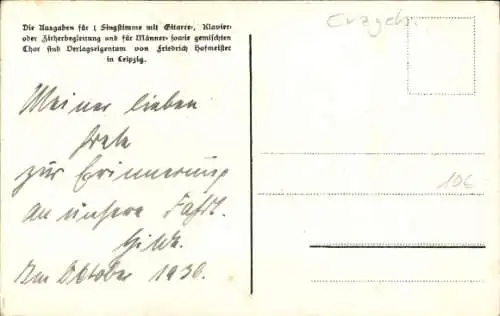 Die Ausgaben für 1 Singstimme mit Gitarre-, Klavier-
oder Zitherbegleitung und für Männer- sowie gemischten
Chor sind Verlagseigentum von Friedrich Hofmeister
in Leipzig.
Erzgeb.
Meiner lieben
zur Erinnerung
an unsere Fahrt.
Im Oktober 1936.
106